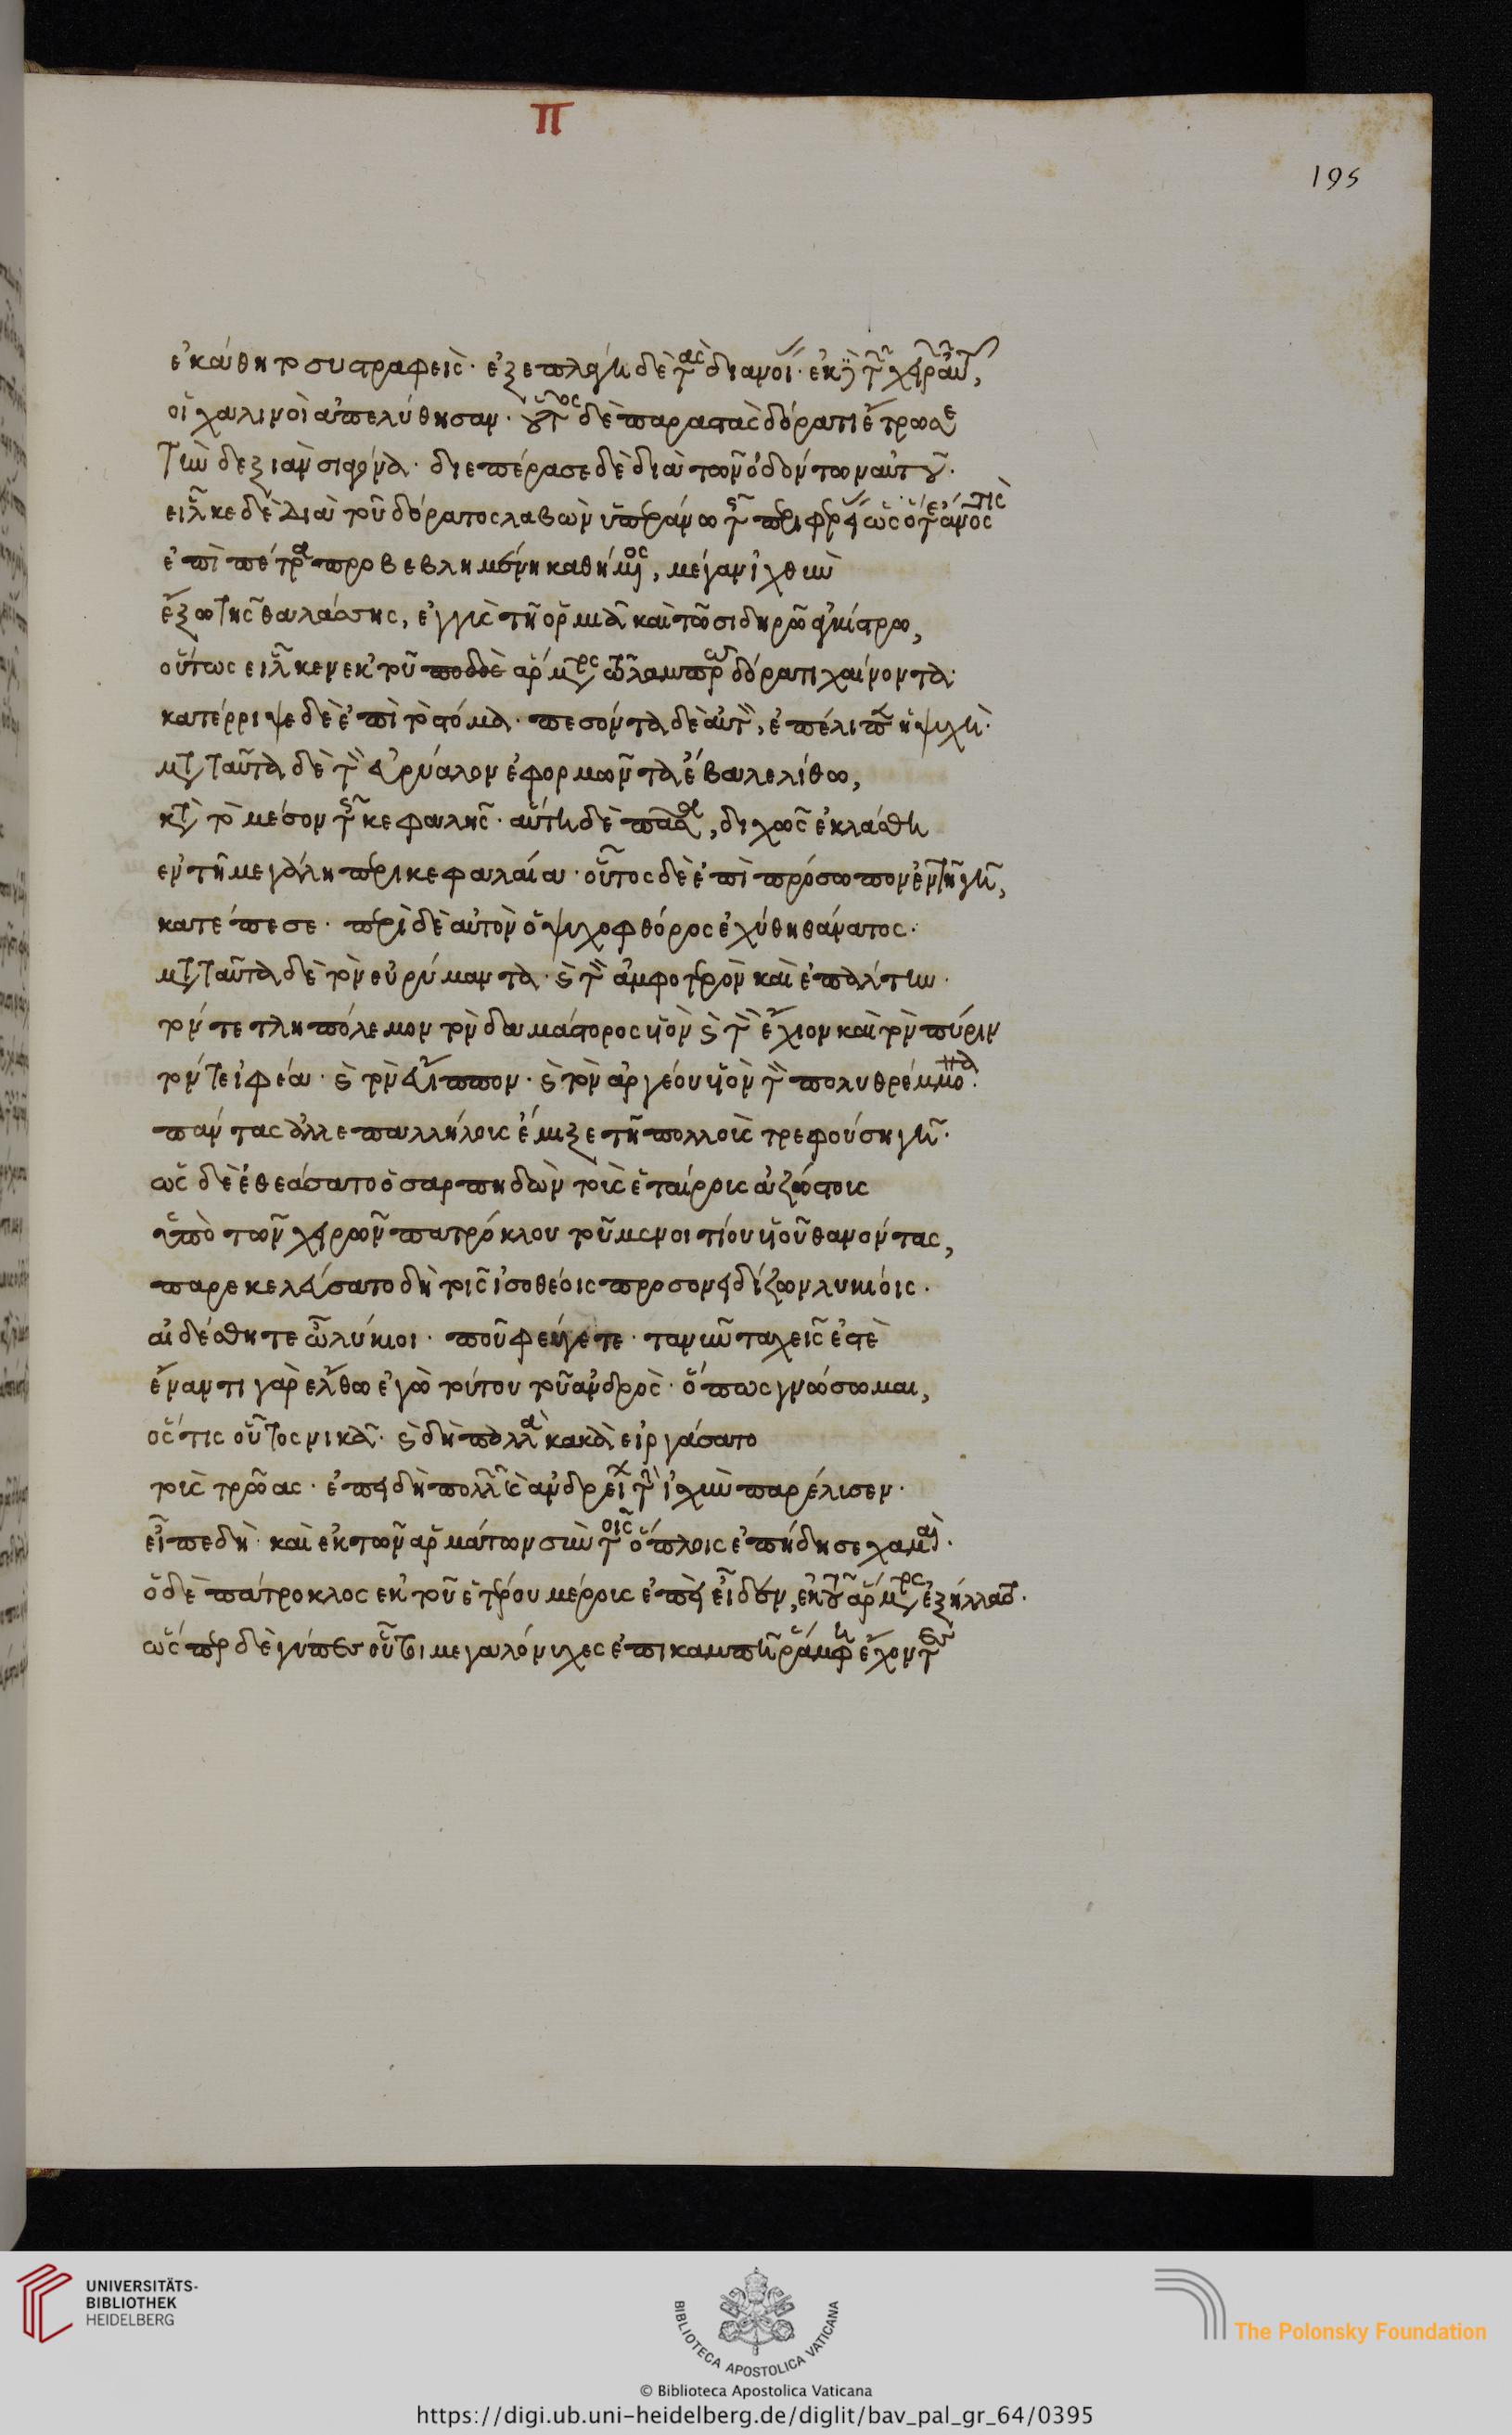 Π
195
ἐκάθητο συστραφείς· ἐξεπλάγη δὲ τὰς διανοίας· ἐκ δὲ τῶν χειρῶν αὐτοῦ,
οἱ χαλινοὶ ἀπελύθησαν· οὗτος δὲ παραστὰς δόρατι ἔτρωσε
τὴν δεξιὰν σιαγόνα· διεπέρασε δὲ διὰ τῶν ὀδόντων αὐτοῦ·
εἷλκε δὲ διὰ τοῦ δόρατος λαβὼν ὑπεράνω τῆς περιφερείας ὡς ὅτε ἄνος τις
ἐπὶ πέτρα προβεβλημένη καθήμενος, μέγαν ἰχθὺν
ἔξω τῆς θαλάσσης, ἐγγὺς τῆ ὁρμιᾶ καὶ τῶ σιδηρῶ ἀγκίστρω,
οὕτως εἷλκεν ἐκ τοῦ ποδὸς ἅρματος τῶ λαμπρῶ δόρατι χαίνοντα·
κατέρριψε δὲ ἐπὶ τὸ στόμα· πεσόντα δὲ αὐτὸν, ἐπέλιπεν ἡ ψυχή·
μετὰ ταῦτα δὲ τὸν ἐρύαλον ἐφορμῶντα ἔβαλε λίθω,
κατὰ τὸ μέσον τῆς κεφαλῆς· αὕτη δὲ πᾶσα, διχῶς ἐκλάσθη
ἐν τῆ μεγάλη περικεφαλαία· οὗτος δὲ ἐπὶ πρόσωπον ἐν τῆ γῆ,
κατέπεσε· περὶ δὲ αὐτὸν ὁ ψυχοφθόρος ἐχύθη θάνατος·
μετὰ ταῦτα δὲ τὸν εὐρύμαντα· καὶ τὸν ἀμφοτερὸν καὶ ἐπάλτην·
τόν τε τληπόλεμον τὸν δαμάστορος υἱὸν καὶ τὸν ἔχιον καὶ τὸν πύριν
τόν τε ἰφέα· καὶ τὸν εὔιππον· καὶ τὸν ἀργέου υἱὸν τὸν πολυθρέμμονα·
πάντας ἀλλεπαλλήλοις ἔμιξε τῆ πολλοῖς τρεφούση γῆ·
ὡς δὲ ἐθεάσατο ὁ σαρπηδὼν τοῖς ἑταίροις ἀζώστοις
ὑπὸ τῶν χειρῶν πατρόκλου τοῦ μενοιτίου υἱοῦ θανόντας,
παρεκελεύσατο δὴ τοῖς ἰσοθέοις προσονειδίζων λυκίοις·
αἰδέσθητε ὦ λύκιοι· ποῦ φεύγετε· τανῦν ταχεῖς ἐστὲ
ἔναντι γὰρ ἔλθω ἐγὼ τούτου τοῦ ἀνδρὸς· ὅπως γνώσωμαι,
ὅστις οὗτος νικᾶ· καὶ δὴ πολλὰ κακὰ εἰργάσατο
τοῖς τρῶας· ἐπειδὴ πολλῶν καὶ ἀνδρείων τὴν ἰσχὺν παρέλυσεν·
εἶπε δή· καὶ ἐκ τῶν ἁρμάτων σὺν τοῖς ὅπλοις ἐπήδησε χαμαί·
ὁ δὲ πάτροκλος ἐκ τοῦ ἑτέρου μέροις ἐπεὶ εἶδεν, ἐκ τοῦ ἅρματος ἐξήλλατο·
ὥσπερ δὲ γύπες οὗτοι μεγαλόνυχες ἐπικαμπῆ ῥάμφη ἔχοντες
UNIVERSITÄTS-
BIBLIOTHEK
HEIDELBERG
BIBLIOTECA APOSTOLICA VATICANA
The Polonsky Foundation
© Biblioteca Apostolica Vaticana
https://digi.ub.uni-heidelberg.de/diglit/bav_pal_gr_64/0395